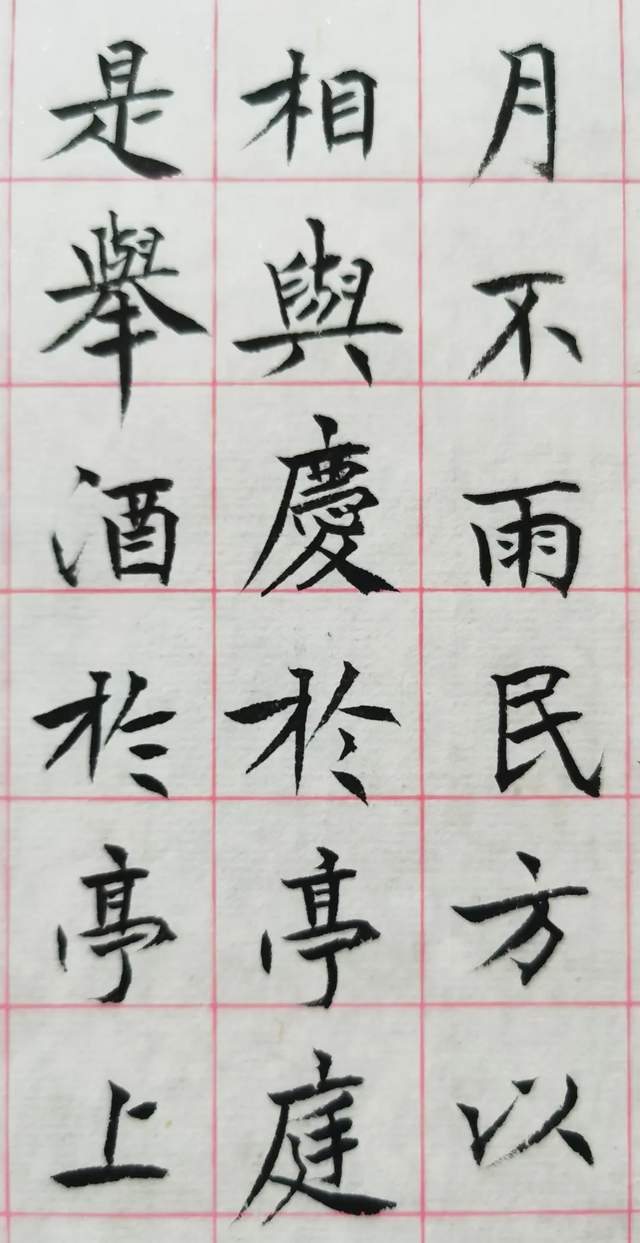 月不雨民方以
相與慶於亭庭
是舉酒於亭上